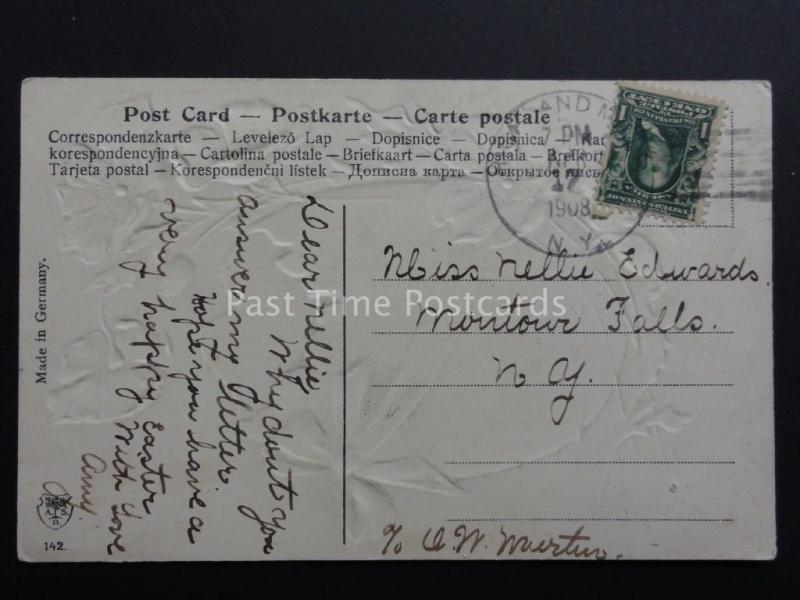 Post Card — Postkarte — Carte postale
Correspondenzkarte — Levelező Lap — Dopisnice — Dopisnica —
korespondencyjna — Cartolina postale — Briefkaart — Carta postala —
Tarjeta postal — Korespondenční lístek — Дописна карта — Открытое
AND
7 PM
17
1908
N.Y.
1 1
ONE CENT
Made in Germany.
Dear Nellie,
Why dont you
answer my letter.
Hope you have a
very happy Easter
With love
Amy.
Miss Nellie Edwards.
Montour Falls.
N Y.
Past Time Postcards
142.